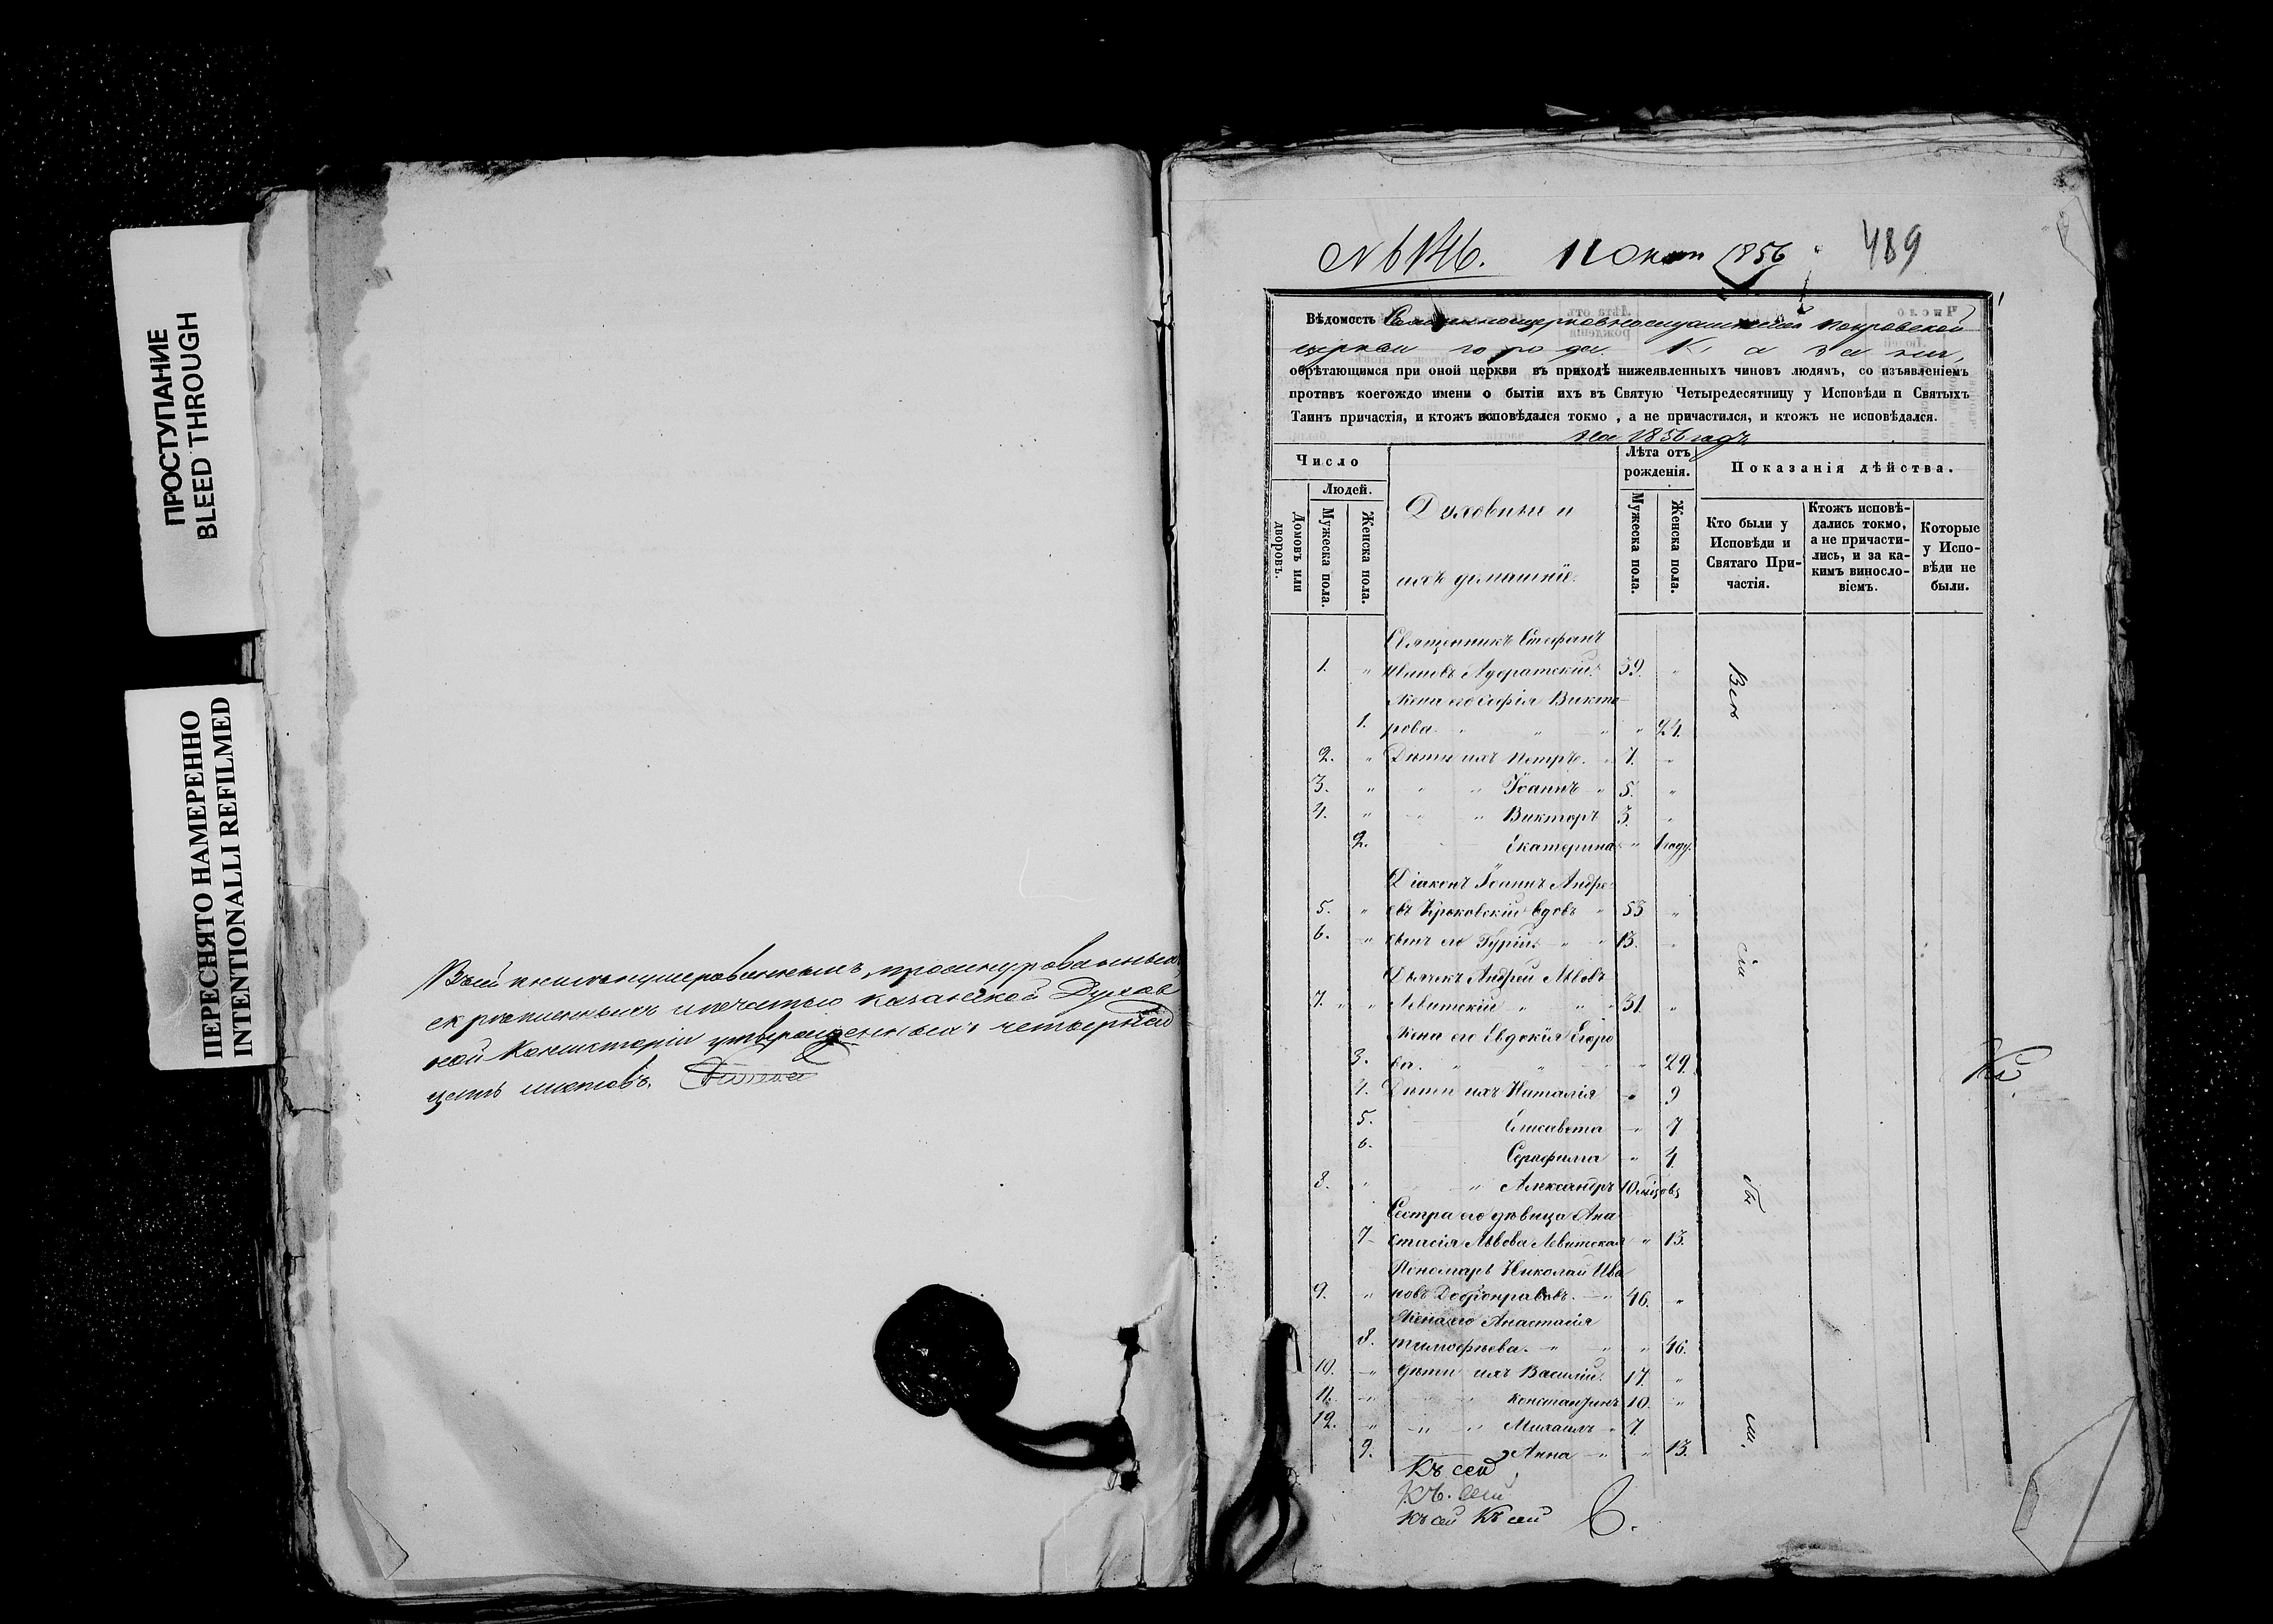 ПРОСТУПАНИЕ
BLEED THROUGH
ПЕРЕСНЯТО НАМЕРЕННО
INTENTIONALLI REFILMED
скрепленныхъ и печатью казанской Духов
ной Консисторіи утвержденныхъ четыр
листовъ.
№ 6146. 11 Окт 1856
489
Вѣдомость Покровской
церкви города Казани,
обрѣтающимся при оной церкви въ приходѣ нижеявленныхъ чиновъ людямъ, со изъявленіемъ
противъ коегождо имени о бытіи ихъ въ Святую Четыредесятницу у Исповѣди и Святыхъ
Таинъ причастія, и ктожъ исповѣдался токмо, а не причастился, и ктожъ не исповѣдался.
на 1856 годъ
Число
Людей.
Домовъ или дворовъ.
Мужеска пола.
Женска пола.
Духовные и
ихъ домашніе.
Лѣта отъ рожденія.
Мужеска пола.
Женска пола.
Показанія дѣйства.
Кто были у Исповѣди и Святаго Причастія.
Ктожъ исповѣдались токмо, а не причастились, и за какимъ винословіемъ.
Которые у Исповѣди не были.
Священникъ Стефанъ
1. " Адоратскій. 39. "
Жена его Софія Викто
1. рова. " " " " 24.
2. " Дѣти ихъ Петръ. " 7. "
3. " " " Іоаннъ " 5. "
4. " " " Викторъ 3. "
2. Екатерина " 1 году.
Діаконъ Іоаннъ Андре
5. " евъ вдовъ " 53 "
6. " сынъ его Гурій " " 13. "
Дьячекъ Андрей Львовъ
7. " " Левитскій " " " 31. "
Жена его Евдокія Егоро
3. ва. " " " " 29.
4. Дѣти ихъ Наталія " 9
5. Елисавета " 7
6. Серафима " 4.
8. " " Александръ 10 мѣсяцовъ
Сестра его дѣвица Ана
7 стасія Львова Левитская " 13.
Пономарь Николай Ива
9. " новъ Добронравовъ. " 46. "
Жена его Анастасія
8. Тимофѣева. " " " 46.
10. " дѣти ихъ Василій. 17. "
11. " Константинъ 10. "
12. " " " Михаилъ " 7.
9. Анна " " 13.
Всѣ
сіи
бы
ли.
Къ сей
Къ. сей
Къ сей Къ сей